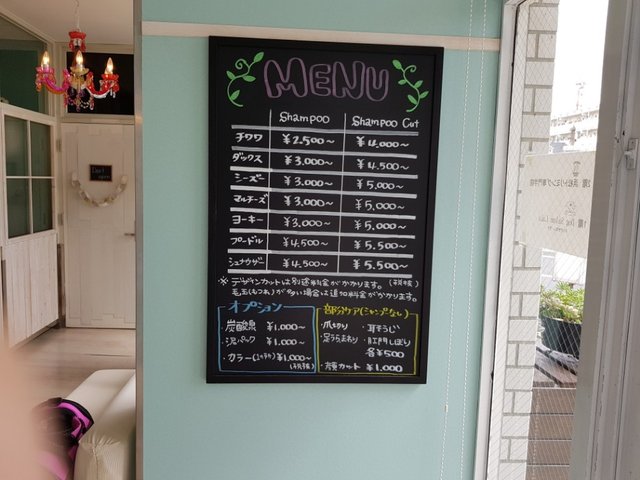 MENU
Shampoo Shampoo Cut
チワワ ¥2,500～ ¥4,000～
ダックス ¥3,000～ ¥4,500～
シーズー ¥3,000～ ¥5,000～
マルチーズ ¥3,000～ ¥5,000～
ヨーキー ¥3,000～ ¥5,000～
プードル ¥4,500～ ¥5,500～
シュナウザー ¥4,500～ ¥5,500～
※ デザインカットは別途料金がかかります。(税抜)
毛玉(もつれ)が多い場合は追加料金がかかります。
オプション
・炭酸泉 ¥1,000～
・泥パック ¥1,000～
・カラー(1ヶ所) ¥1,000～
(税抜)
部分ケア(シャンプーなし)
・爪切り ・耳そうじ
・足うらまわり ・肛門しぼり
各¥500
・顔カット ¥1,000
2階 浜松トリミング専門学校
1階 Dog Salon